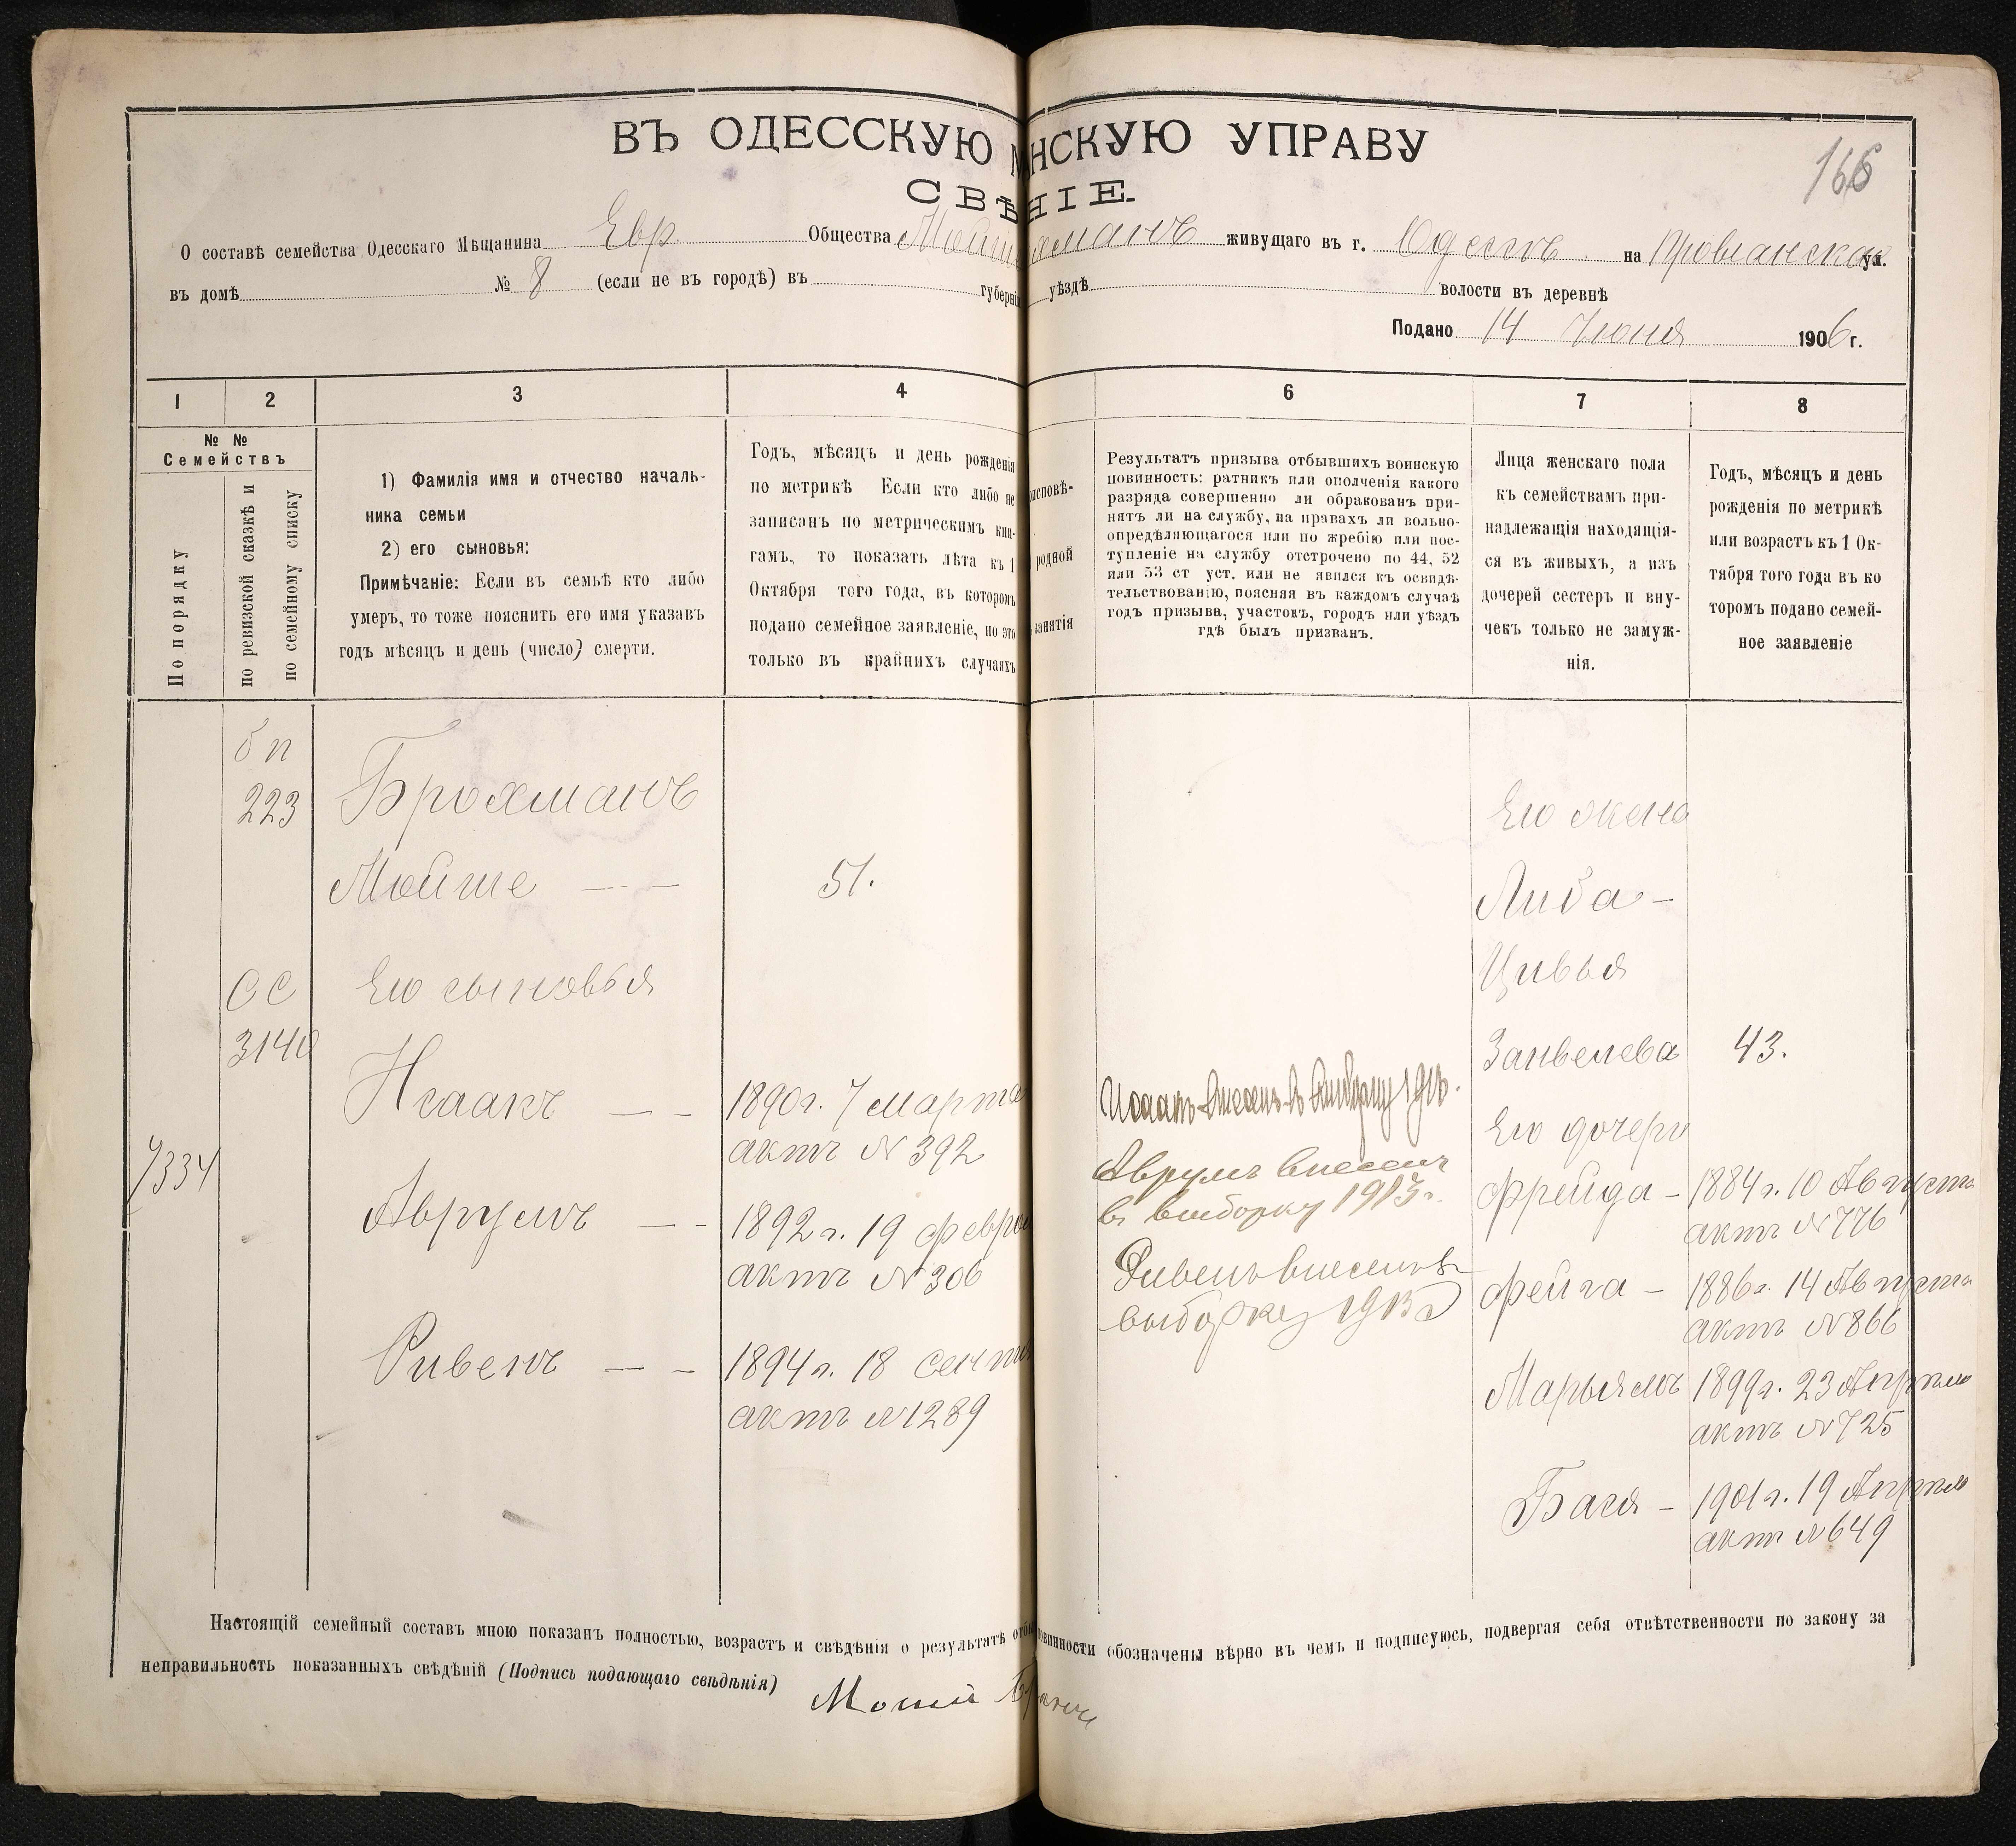 166
ВЪ ОДЕССКУЮ НСКУЮ УПРАВУ
СВѢНІЕ.
О составѣ семейства Одесскаго Мѣщанина Евр Общества Мойш хманъ живущаго въ г. Одессѣ на Провіанская ул.
въ домѣ № 8 (если не въ городѣ) въ губерніи уѣздѣ волости въ деревнѣ
Подано 14 Июня 1906 г.
1 2 3 4 6 7 8
№ №
Семействъ
По порядку
по ревизской сказкѣ и
по семейному списку
1) Фамилія имя и отчество началь-
ника семьи
2) его сыновья:
Примѣчаніе: Если въ семьѣ кто либо
умеръ, то тоже пояснить его имя указавъ
годъ мѣсяцъ и день (число) смерти.
Годъ, мѣсяцъ и день рожденія
по метрикѣ Если кто либо не
записанъ по метрическимъ кни-
гамъ, то показать лѣта къ 1
Октября того года, въ которомъ
подано семейное заявленіе, но это
только въ крайнихъ случаяхъ
исповѣ-
родной
занятія
Результатъ призыва отбывшихъ воинскую
повинность: ратникъ или ополченія какого
разряда совершенно ли обракованъ при-
нятъ ли на службу, на правахъ ли вольно-
опредѣляющагося или по жребію или пос-
тупленіе на службу отстрочено по 44, 52
или 53 ст уст. или не явился къ освидѣ-
тельствованію, поясняя въ каждомъ случаѣ
годъ призыва, участокъ, городъ или уѣздъ
гдѣ былъ призванъ.
Лица женскаго пола
къ семействамъ при-
надлежащія находящія-
ся въ живыхъ, а изъ
дочерей сестеръ и вну-
чекъ только не замуж-
нія.
Годъ, мѣсяцъ и день
рожденія по метрикѣ
или возрастъ къ 1 Ок-
тября того года въ ко
торомъ подано семей-
ное заявленіе
7334
бп
223
СС
3140
Брохманъ
Мойше — —
Его сыновья
Исаакъ — —
Аврумъ — —
Ривенъ — —
51.
1890г. 7 марта
актъ № 392
1892 г. 19 февра
актъ № 306
1894 г. 18 сентя
актъ №1289
Исаакъ внесенъ в выборку 191
Аврумъ внесенъ
въ выборку 1913 г.
Ривенъ внесенъ в
выборку 1915 г
Его жена
Либа —
Цивья
Занвелева 43.
Его дочери
Фрейда — 1884 г. 10 Августа
актъ № 776
Фейга — 1886 г. 14 Августа
актъ №866
Марьямъ 1899 г. 23 Апрѣля
актъ №725
Бася — 1901 г. 19 Апрѣля
актъ №649
Настоящій семейный составъ мною показанъ полностью, возрастъ и свѣдѣнія о результатѣ отбы повинности обозначены вѣрно въ чемъ и подписуюсь, подвергая себя отвѣтственности по закону за
неправильность показанныхъ свѣдѣній (Подпись подающаго свѣдѣнія)